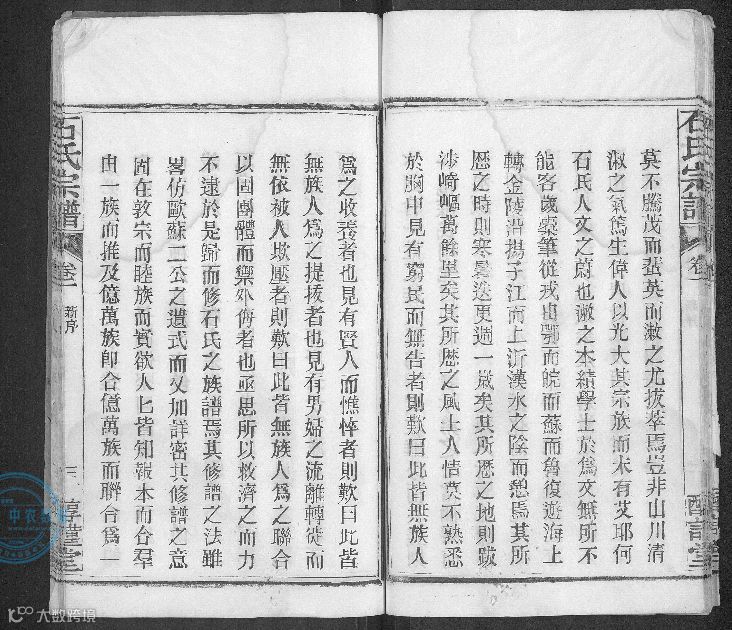 石氏宗譜
卷一
醇謹堂
莫不騰茂而蜚英而漱之尤拔萃焉豈非山川清
淑之氣篤生偉人以光大其宗族而未有艾耶何
石氏人文之蔚也漱之本績學士於爲文無所不
能客歲橐筆從戎由鄂而皖而蘇而魯復遊海上
轉金陵泝揚子江而上沂漢水之陰而憩焉其所
歷之時則寒暑迭更週一歲矣其所歷之地則跋
涉崎嶇萬餘里矣其所歷之風土人情莫不熟悉
於胸中見有窮民而無告者則歎曰此皆無族人
爲之收養者也見有賢人而憔悴者則歎曰此皆
無族人爲之提拔者也見有男婦之流離轉徙而
無依被人欺壓者則歎曰此皆無族人爲之聯合
以固團體而禦外侮者也亟思所以救濟之而力
不遠於是歸而修石氏之族譜焉其修譜之法雖
畧仿歐蘇二公之遺式而又加詳密其修譜之意
固在敦宗而睦族而實欲人匕皆知報本而合羣
由一族而推及億萬族卽合億萬族而聯合爲一
石氏宗譜
卷一
新序
三
醇謹堂
大数跨境